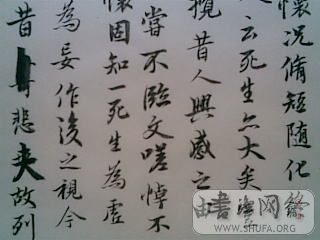 懷況脩短随化
云死生亦大矣
攬昔人興感之
嘗不臨文嗟悼不
懷固知一死生為虛
為妄作後之視今
昔悲夫故列
WWW.SHUFA.ORG